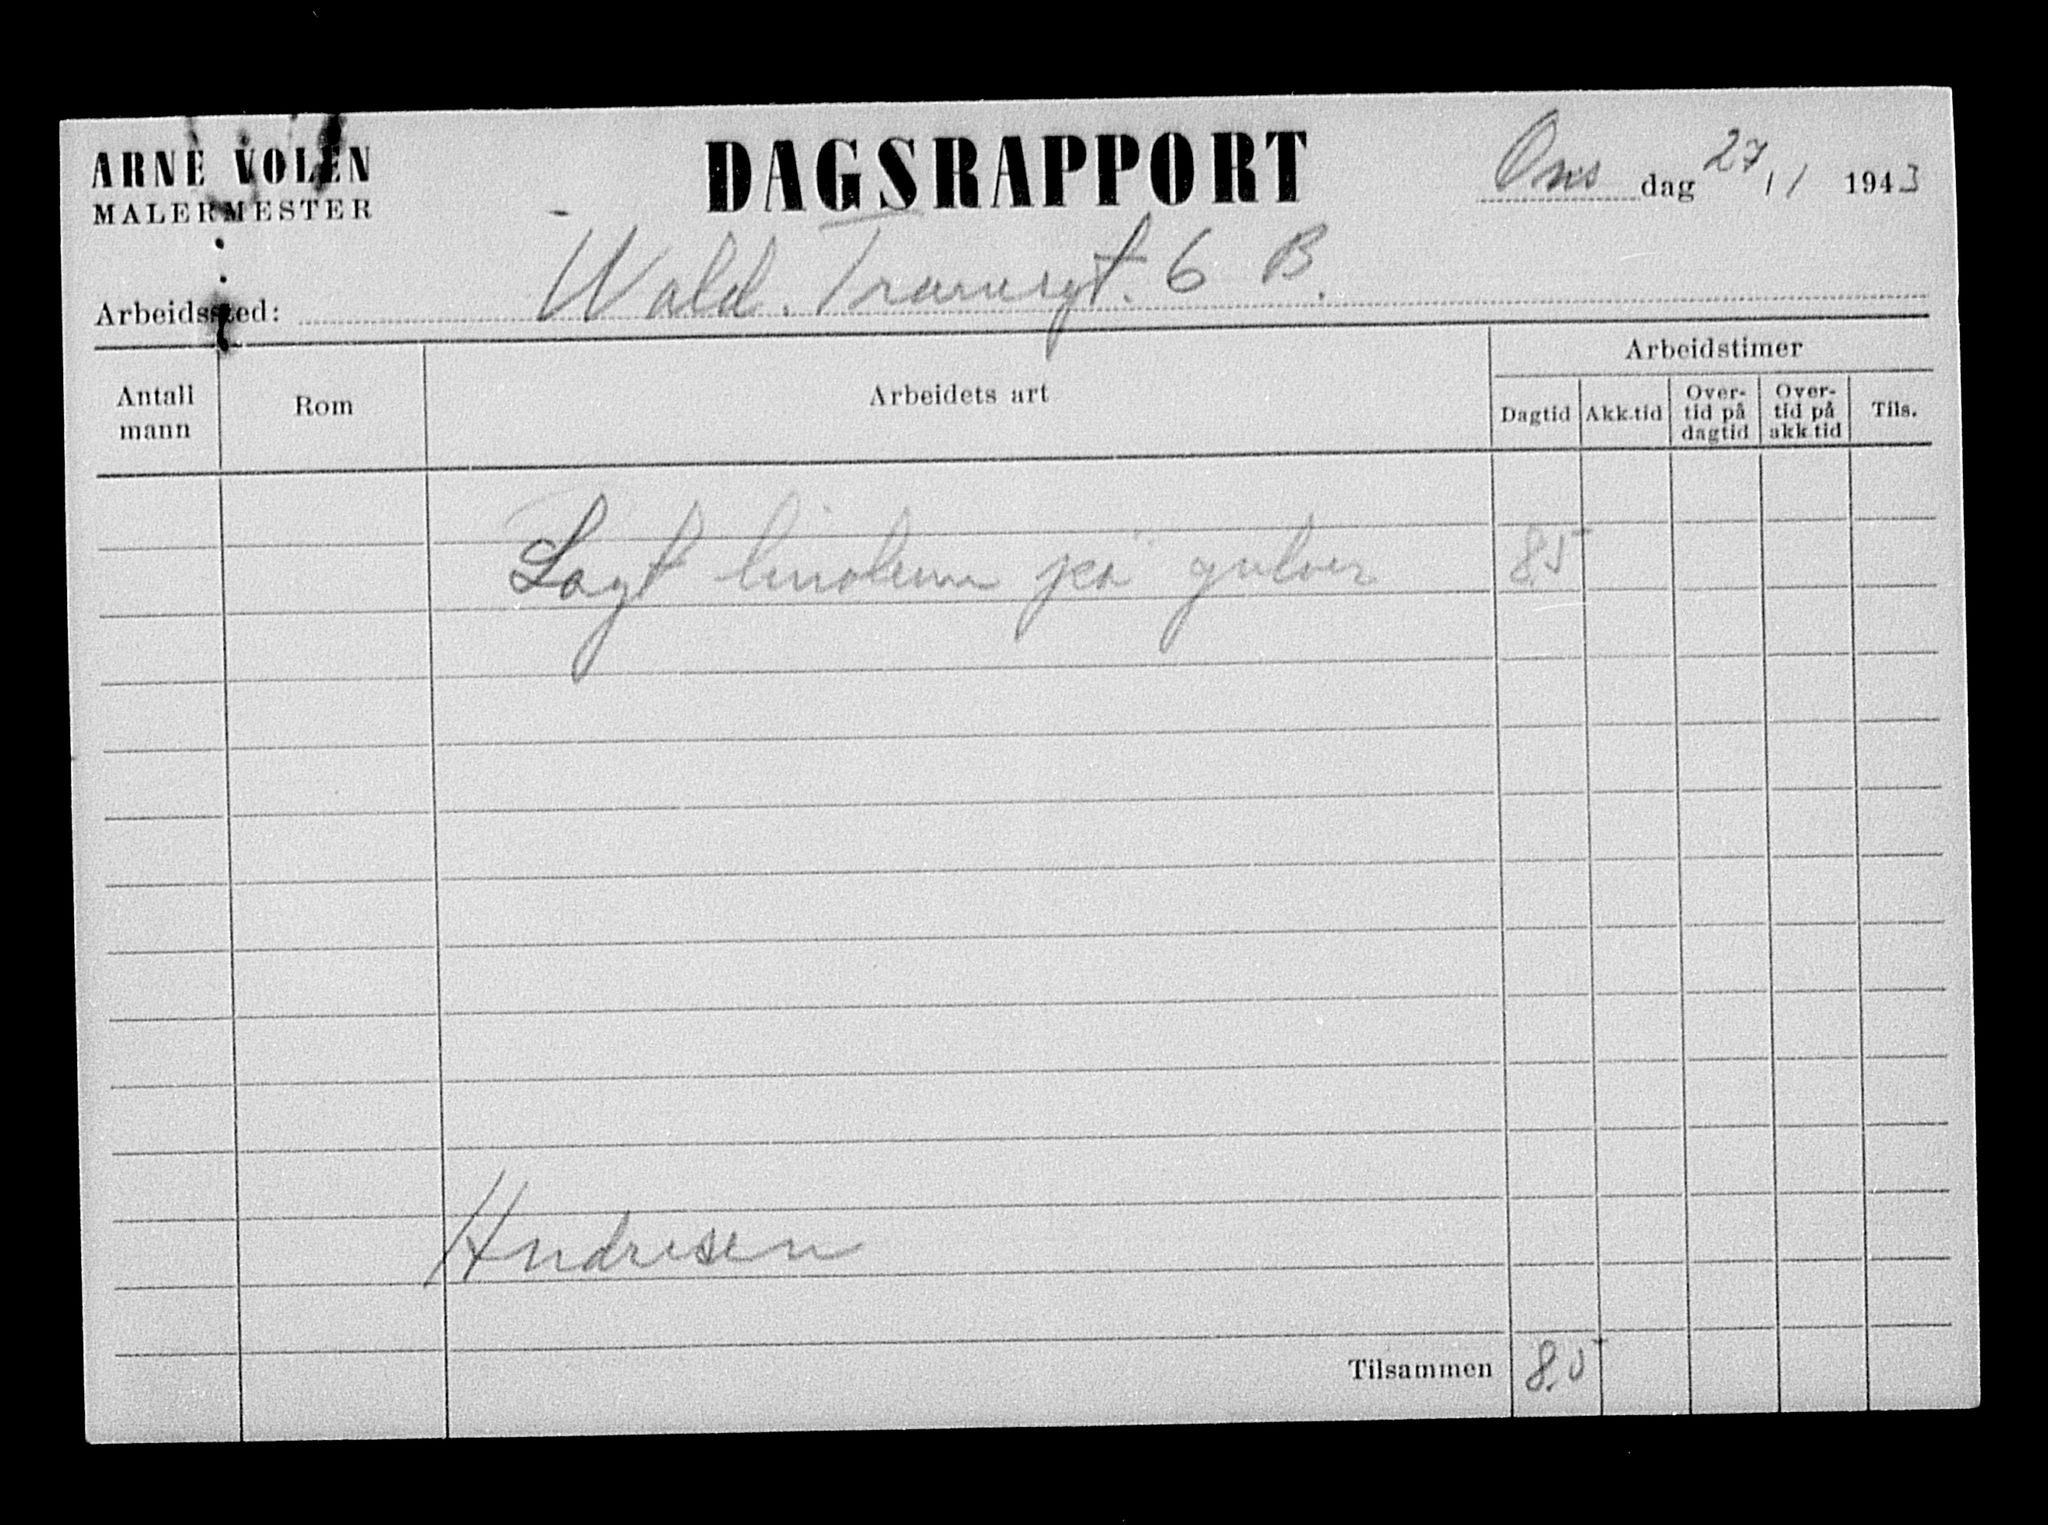 ARNE VOLEN
MALERMESTER
DAGSRAPPORT
Ons dag 27/1 1943
Arbeidssted: Wald. Tranesgt. 6 B.
Antall mann
Rom
Arbeidets art
Arbeidstimer
Dagtid
Akk.tid
Over-
tid på
dagtid
Over-
tid på
akk.tid
Tils.
Lagt linoleum på gulver 8.5
Andresen
Tilsammen 8.5